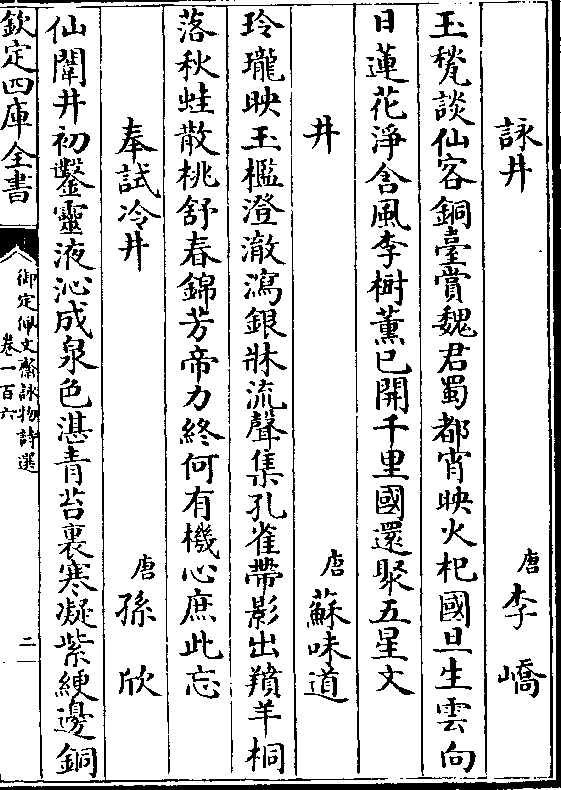 詠井 唐 李嶠
玉甃談仙客銅臺賞魏君蜀都宵映火杞國旦生雲向
日蓮花淨含風李樹薰已開千里國還聚五星文
井 唐 蘇味道
玲瓏映玉檻澄澈瀉銀牀流聲集孔雀帶影出羵羊桐
落秋蛙散桃舒春錦芳帝力終何有機心庶此忘
奉試冷井 唐 孫欣
仙闈井初鑿靈液沁成泉色湛青苔裏寒凝紫綆邊銅
欽定四庫全書
御定佩文齋詠物詩選
卷一百六
二